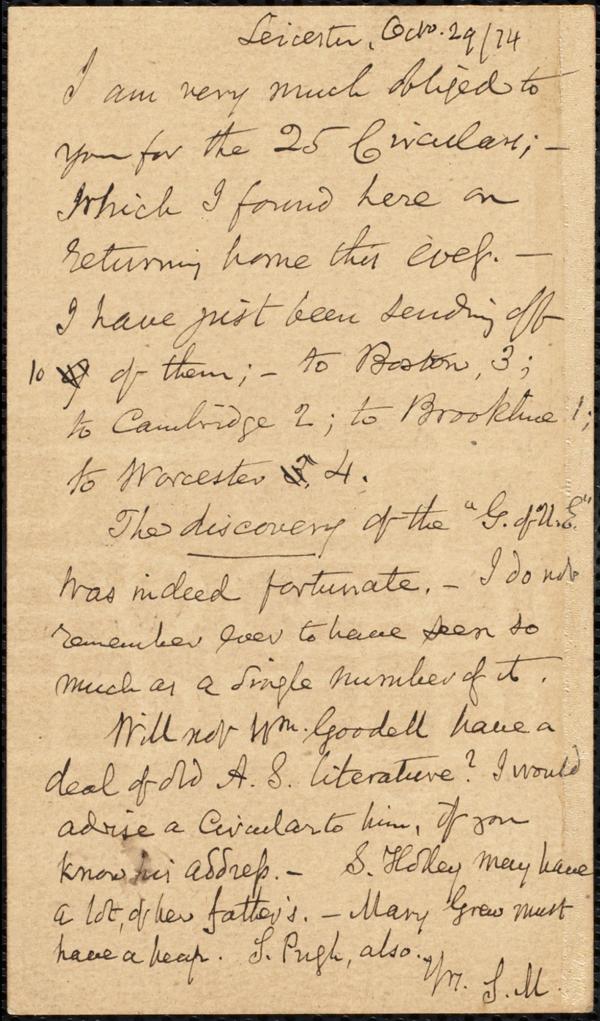 Leicester, Octo. 29/74
I am very much obliged to
you for the 25 Circulars; –
Which I found here on
returning home this eveg. –
I have just been sending off
10 of them; – to Boston, 3;
to Cambridge 2; to Brookline 1;
to Worcester 4.
The discovery of the "G. of U. E."
was indeed fortunate. – I do not
remember ever to have seen so
much as a single number of it.
Will not Wm. Goodell have a
deal of old A. S. literature? I would
advise a Circular to him, if you
know his address. – S. Holley may have
a lot, of her father's. – Mary Grew must
have a heap. S. Pugh, also.
S. M.